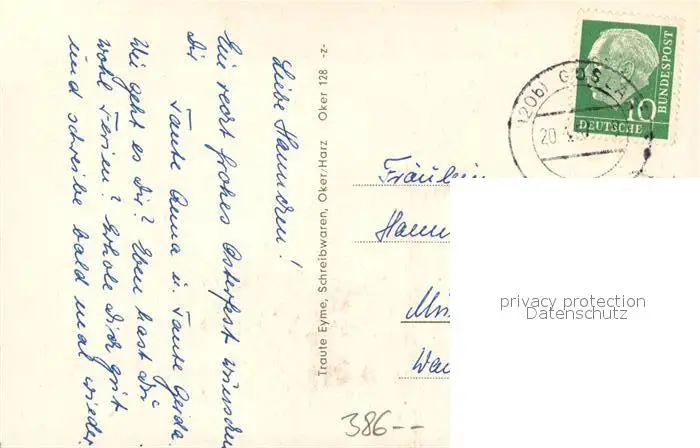 Liebe Hannchen!
Ein recht frohes Osterfest wünschen
Dir Tante Anna u. Tante Gerda.
Wie geht es Dir? Eben hast Du
wohl Ferien? Erhole Dich gut
und schreibe bald mal wieder
Traute Eyme, Schreibwaren, Oker/Harz Oker 128 -z-
(20b) GOSLA
20.
10
DEUTSCHE
BUNDESPOST
Fräulein
Hann
Mü
Wa
privacy protection
Datenschutz
386--